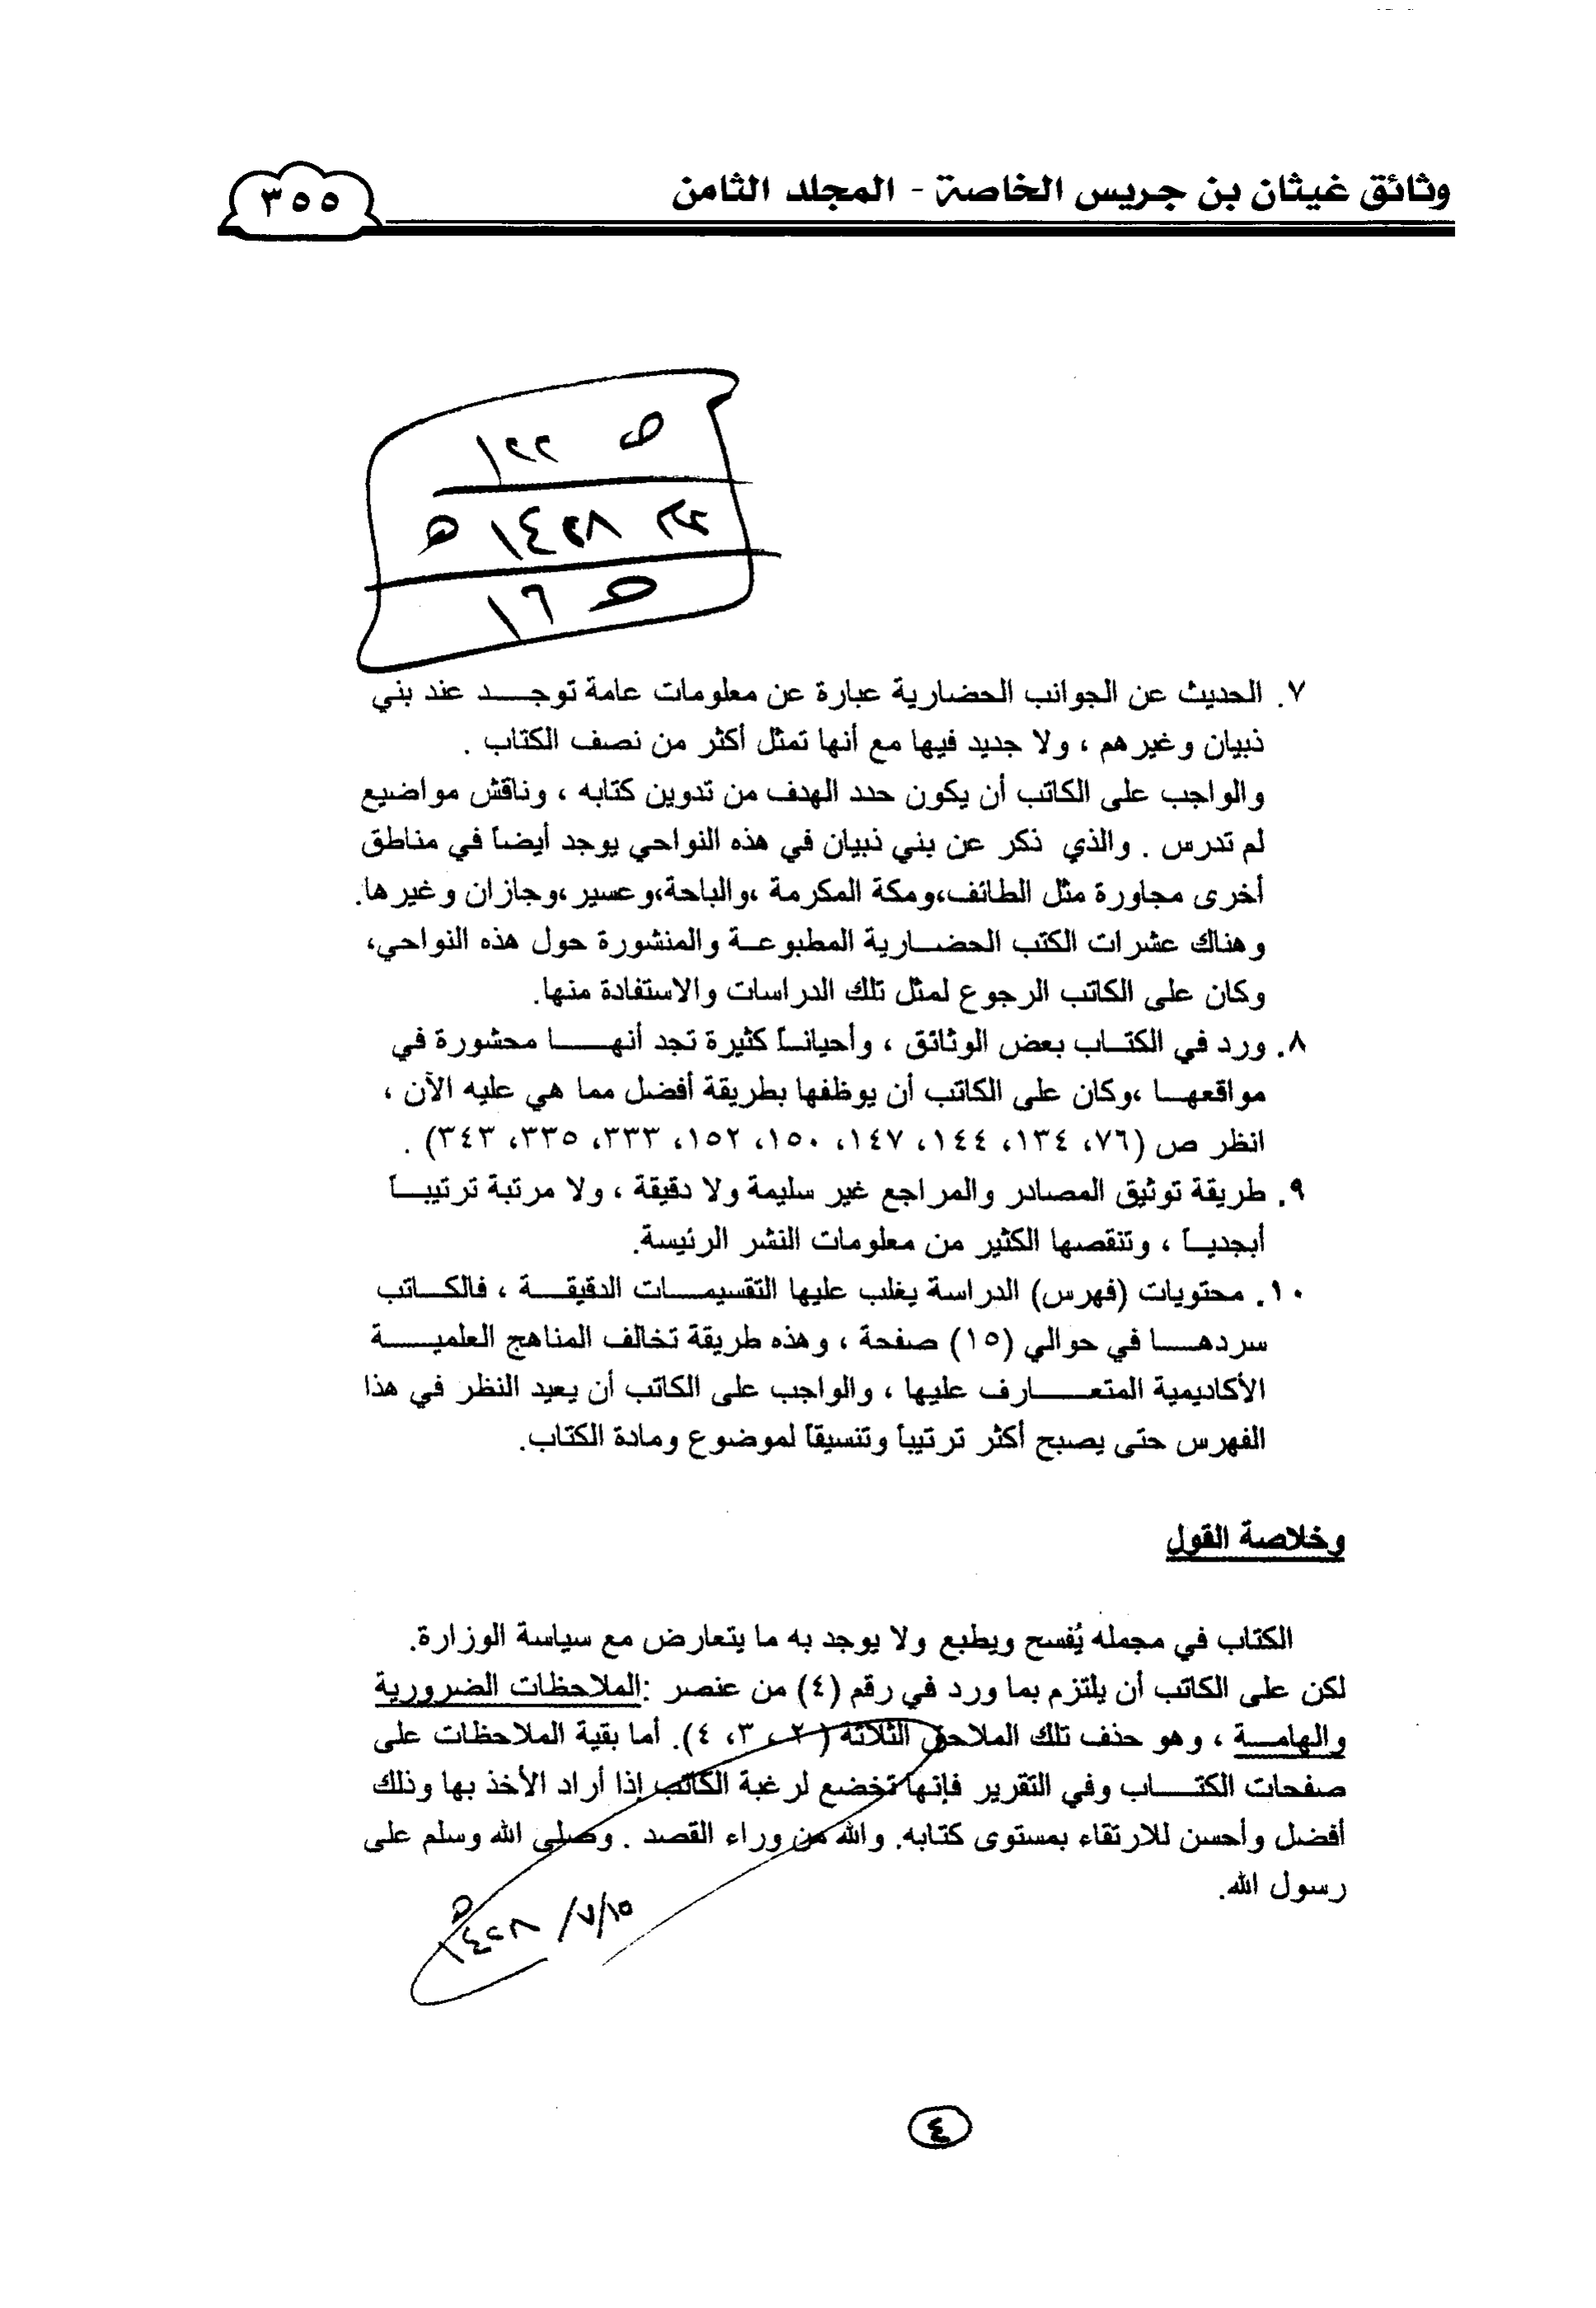 وثائق غيثان بن جريس الخاصة - المجلد الثامن
٣٥٥
ص ١٢٢
١٤٢٨ هـ
١٦
٧. الحديث عن الجوانب الحضارية عبارة عن معلومات عامة توجد عند بني
ذبيان وغيرهم ، ولا جديد فيها مع أنها تمثل أكثر من نصف الكتاب .
والواجب على الكاتب أن يكون حدد الهدف من تدوين كتابه ، وناقش مواضيع
لم تدرس . والذي ذكر عن بني ذبيان في هذه النواحي يوجد أيضاً في مناطق
أخرى مجاورة مثل الطائف،ومكة المكرمة ،والباحة،وعسير،وجازان وغيرها.
وهناك عشرات الكتب الحضارية المطبوعة والمنشورة حول هذه النواحي،
وكان على الكاتب الرجوع لمثل تلك الدراسات والاستفادة منها.
٨. ورد في الكتاب بعض الوثائق ، وأحياناً كثيرة تجد أنها محشورة في
مواقعها ،وكان على الكاتب أن يوظفها بطريقة أفضل مما هي عليه الآن ،
انظر ص (٧٦، ١٣٤، ١٤٤، ١٤٧، ١٥٠، ١٥٢، ٣٣٣، ٣٣٥، ٣٤٣) .
٩. طريقة توثيق المصادر والمراجع غير سليمة ولا دقيقة ، ولا مرتبة ترتيباً
أبجدياً ، وتنقصها الكثير من معلومات النشر الرئيسة.
١٠. محتويات (فهرس) الدراسة يغلب عليها التقسيمات الدقيقة ، فالكاتب
سردها في حوالي (١٥) صفحة ، وهذه طريقة تخالف المناهج العلمية
الأكاديمية المتعارف عليها ، والواجب على الكاتب أن يعيد النظر في هذا
الفهرس حتى يصبح أكثر ترتيباً وتنسيقاً لموضوع ومادة الكتاب.
وخلاصة القول
الكتاب في مجمله يُفسح ويطبع ولا يوجد به ما يتعارض مع سياسة الوزارة.
لكن على الكاتب أن يلتزم بما ورد في رقم (٤) من عنصر :الملاحظات الضرورية
والهامة ، وهو حذف تلك الملاحق الثلاثة (٢ ، ٣، ٤). أما بقية الملاحظات على
صفحات الكتاب وفي التقرير فإنها تخضع لرغبة الكاتب إذا أراد الأخذ بها وذلك
أفضل وأحسن للارتقاء بمستوى كتابه. والله من وراء القصد . وصلى الله وسلم على
رسول الله.
١٥/٧/ ١٤٢٨هـ
٤